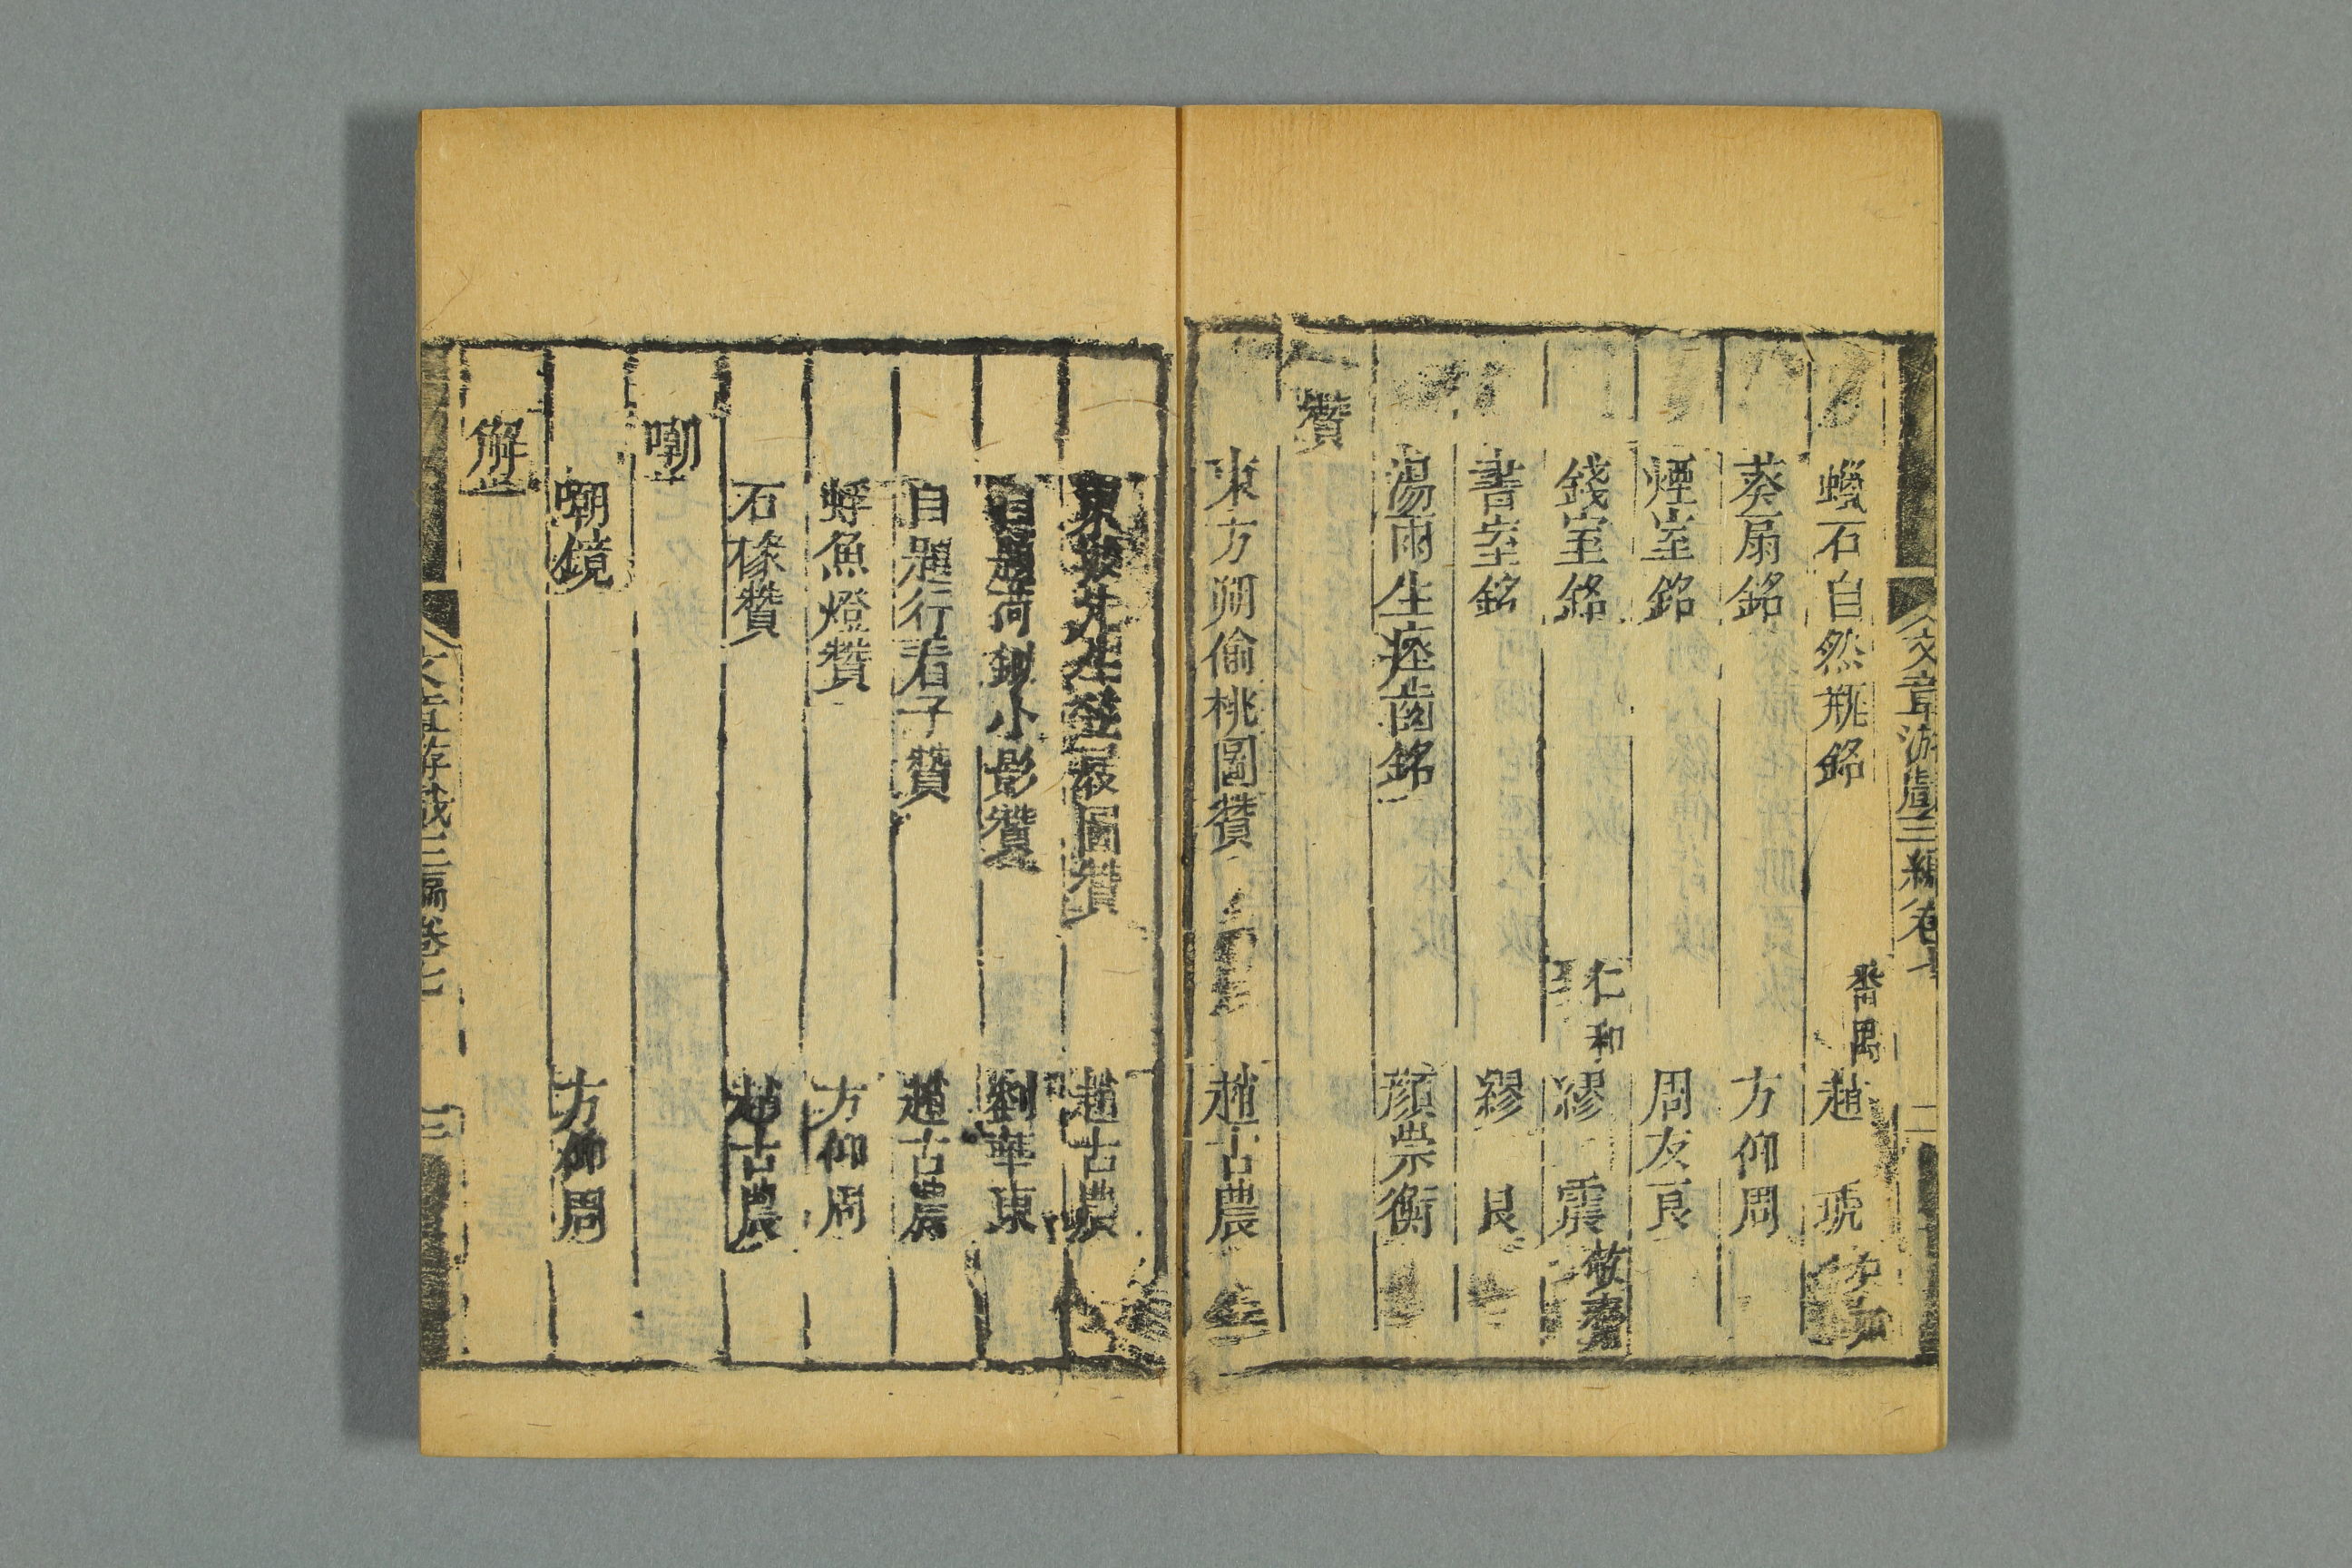 文章游戲三編卷七 二
蠟石自然瓶銘 番禺 趙琥
葵扇銘 方仰周
煙室銘 周友良
錢室銘 仁和 繆震 
書室銘 繆艮
湯雨生瘞齒銘 顏崇衡
贊
東方朔偷桃圖贊 趙古農
東坡先生笠屐圖贊 趙古農
自題荷鋤小影贊 劉華東
自題行看子贊 趙古農
蜉魚燈贊 方仰周
石椽贊 趙古農
嘲
嘲鏡 方仰周
解
文章游戲三編卷七